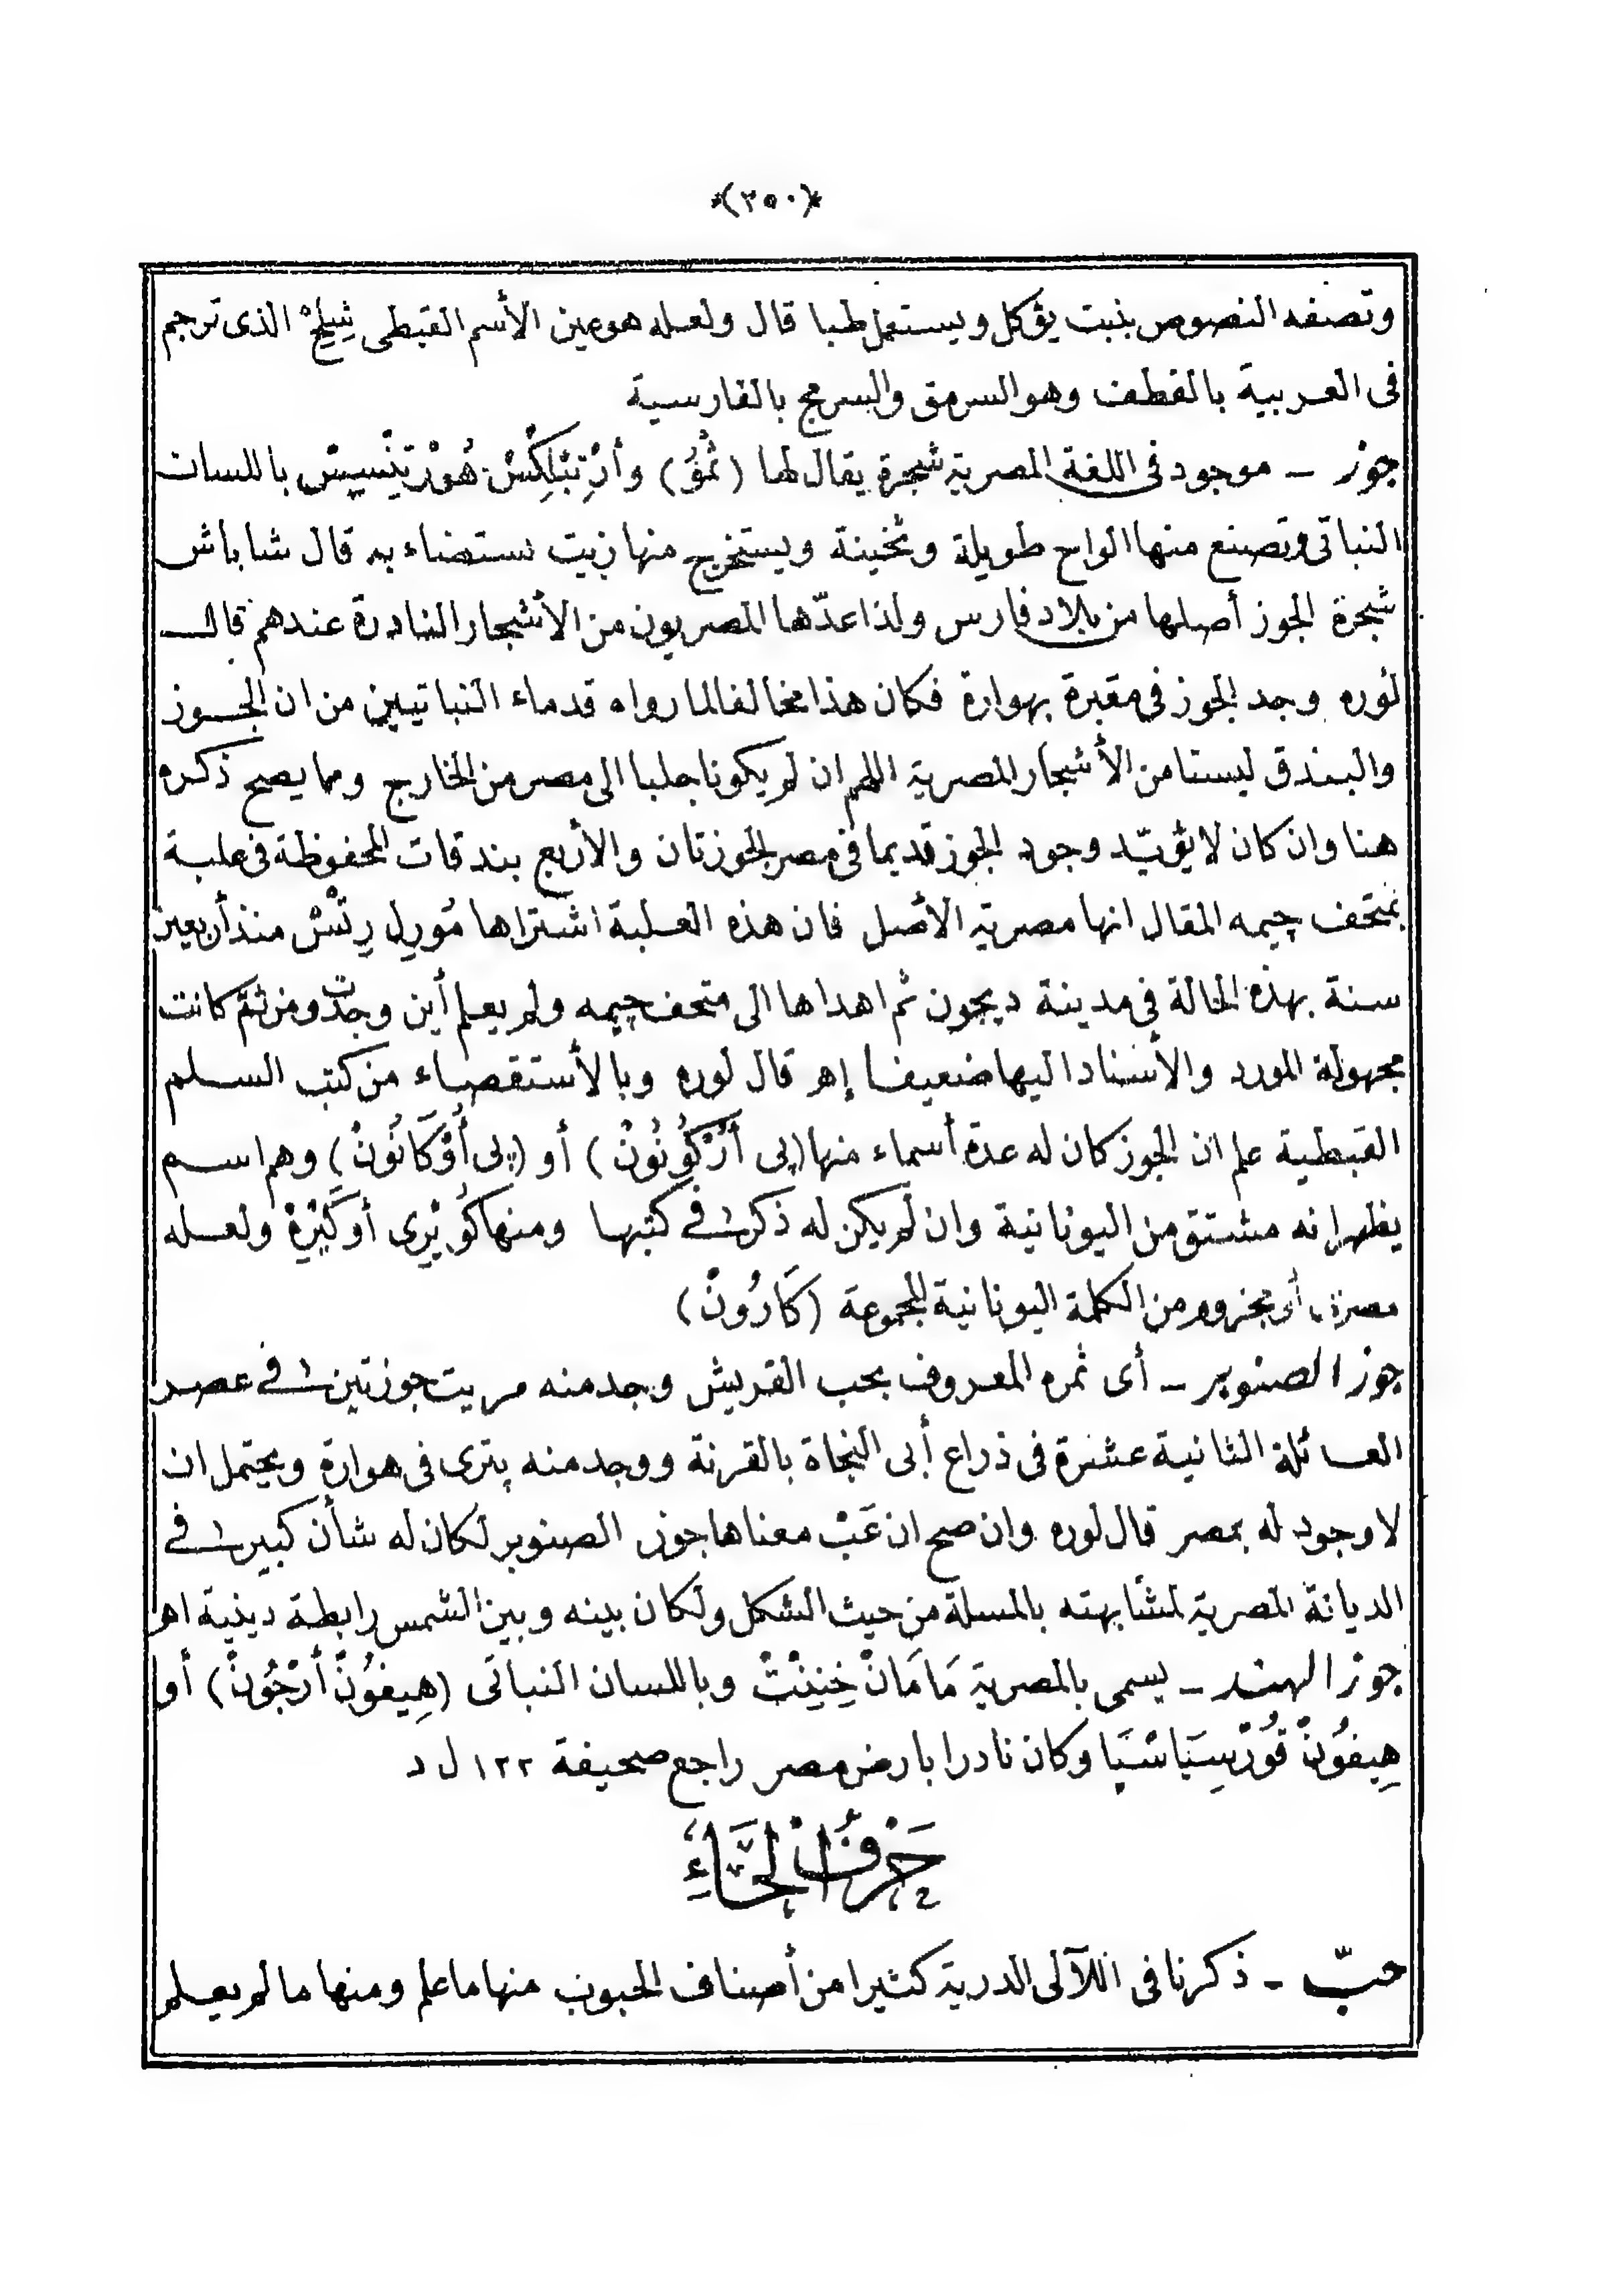 *(٢٥٠)*
وتصفه النصوص بنبت يؤكل ويستعمل طبا قال ولعله هو عين الأسم القبطى الذى ترجم
فى العربية بالقطف وهو السرمق والسرمج بالفارسية
جوز – موجود فى اللغة المصرية شجرة يقال لها باللسان
النباتى وتصنع منها الواح طويلة وثخينة ويستخرج منها زيت نستضاء به قال شاباش
شجرة الجوز أصلها من بلاد فارس ولذا عدّها المصريون من الأشجار النادرة عندهم قال
لوره وجد الجوز فى مقبرة بهوارة فكان هذا مخالفا لما رواه قدماء النباتيين من ان الجوز
والبندق ليستا من الأشجار المصرية اللهم ان لم يكونا جلبا الى مصر من الخارج ومما يصح ذكره
هنا وان كان لا يؤيّد وجود الجوز قديما فى مصر الجوزتان والأربع بندقات المحفوظة فى علبة
بمتحف چيمه المقال انها مصرية الأصل فان هذه العلبة اشتراها مُورِل رِتْسْ منذ أربعين
سنة بهذه الحالة فى مدينة ديجون ثم اهداها الى متحف چيمه ولم يعلم أين وجدت ومن ثم كانت
مجهولة المورد والأسناد اليها ضعيفا إهـ قال لوره وبالأستقصاء من كتب السلم
القبطية علم ان الجوز كان له عدة أسماء منها (پى أَرْكُونُونْ) أو (پى أُوْكَانُونْ) وهم اسم
يظهر انه مشتق من اليونانية وان لم يكن له ذكر فى كتبها ومنها كُويْرِى أو كَيْرِة ولعله
أى مجزوم من الكلمة اليونانية المجموعة (كَارُونْ)
جوز الصنوبر – أى ثمره المعروف بحب القريش وجد منه مريت جوزتين فى عصر
العائلة الثانية عشرة فى ذراع أبى النجاة بالقرنة ووجد منه پترى فى هوارة ويحتمل ان
لا وجود له بمصر قال لوره وان صح ان عَبْ معناها جوز الصنوبر لكان له شأن كبير فى
الديانة المصرية لمشابهته بالمسلة من حيث الشكل ولكان بينه وبين الشمس رابطة دينية اهـ
جوز الهند – يسمى بالمصرية مَامَانْ خِنِنْتْ وباللسان النباتى (هِيفُونْ أَرْجُونْ) أو
هِيفُونْ قُورْسِيَاسْيَا وكان نادرا بارض مصر راجع صحيفة ١٢٢ ل د
حَرْفُ الْحَاءِ
حبّ – ذكرنا فى اللآلى الدرية كثيرا من أصناف الحبوب منها ما علم ومنها ما لم يعلم